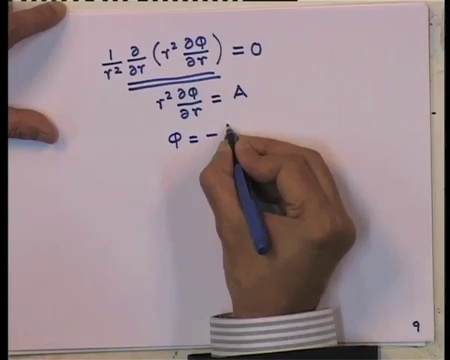 1/r² ∂/∂r (r² ∂φ/∂r) = 0
r² ∂φ/∂r = A
φ = −
9